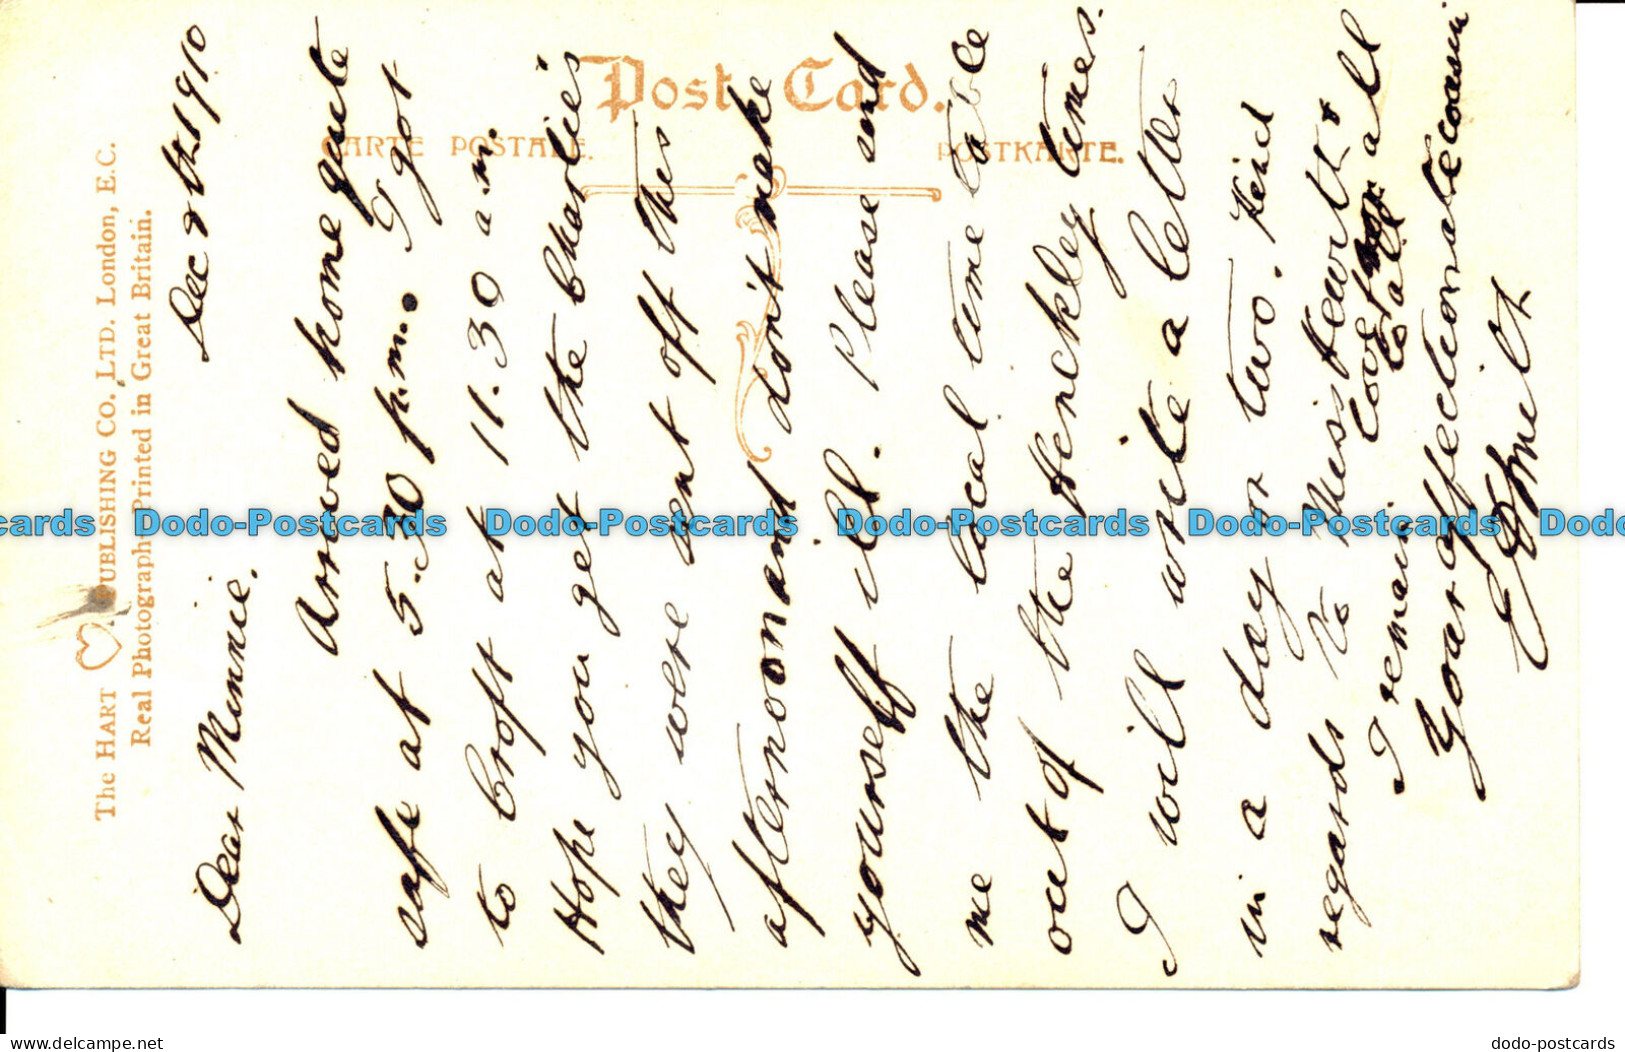 Post Card.
CARTE POSTALE.
POSTKARTE.
The HART PUBLISHING CO., LTD. London, E.C.
Real Photograph. Printed in Great Britain.
Dec 8th 1910
Dear Minnie.
Arrived home quite
safe at 5.30 p.m. I got
to Croft at 11.30 a.m.
Hope you get the Charlie's
they were sent off this
afternoon and don't make
yourself ill. Please send
me the local time table
out of the Hinckley times.
I will write a letter
in a day or two. Kind
regards to Miss Hewitt &
love to all
I remain
Your affectionate cousin
Dodo-Postcards Dodo-Postcards Dodo-Postcards Dodo-Postcards Dodo
delcampe.net
dodo-postcards